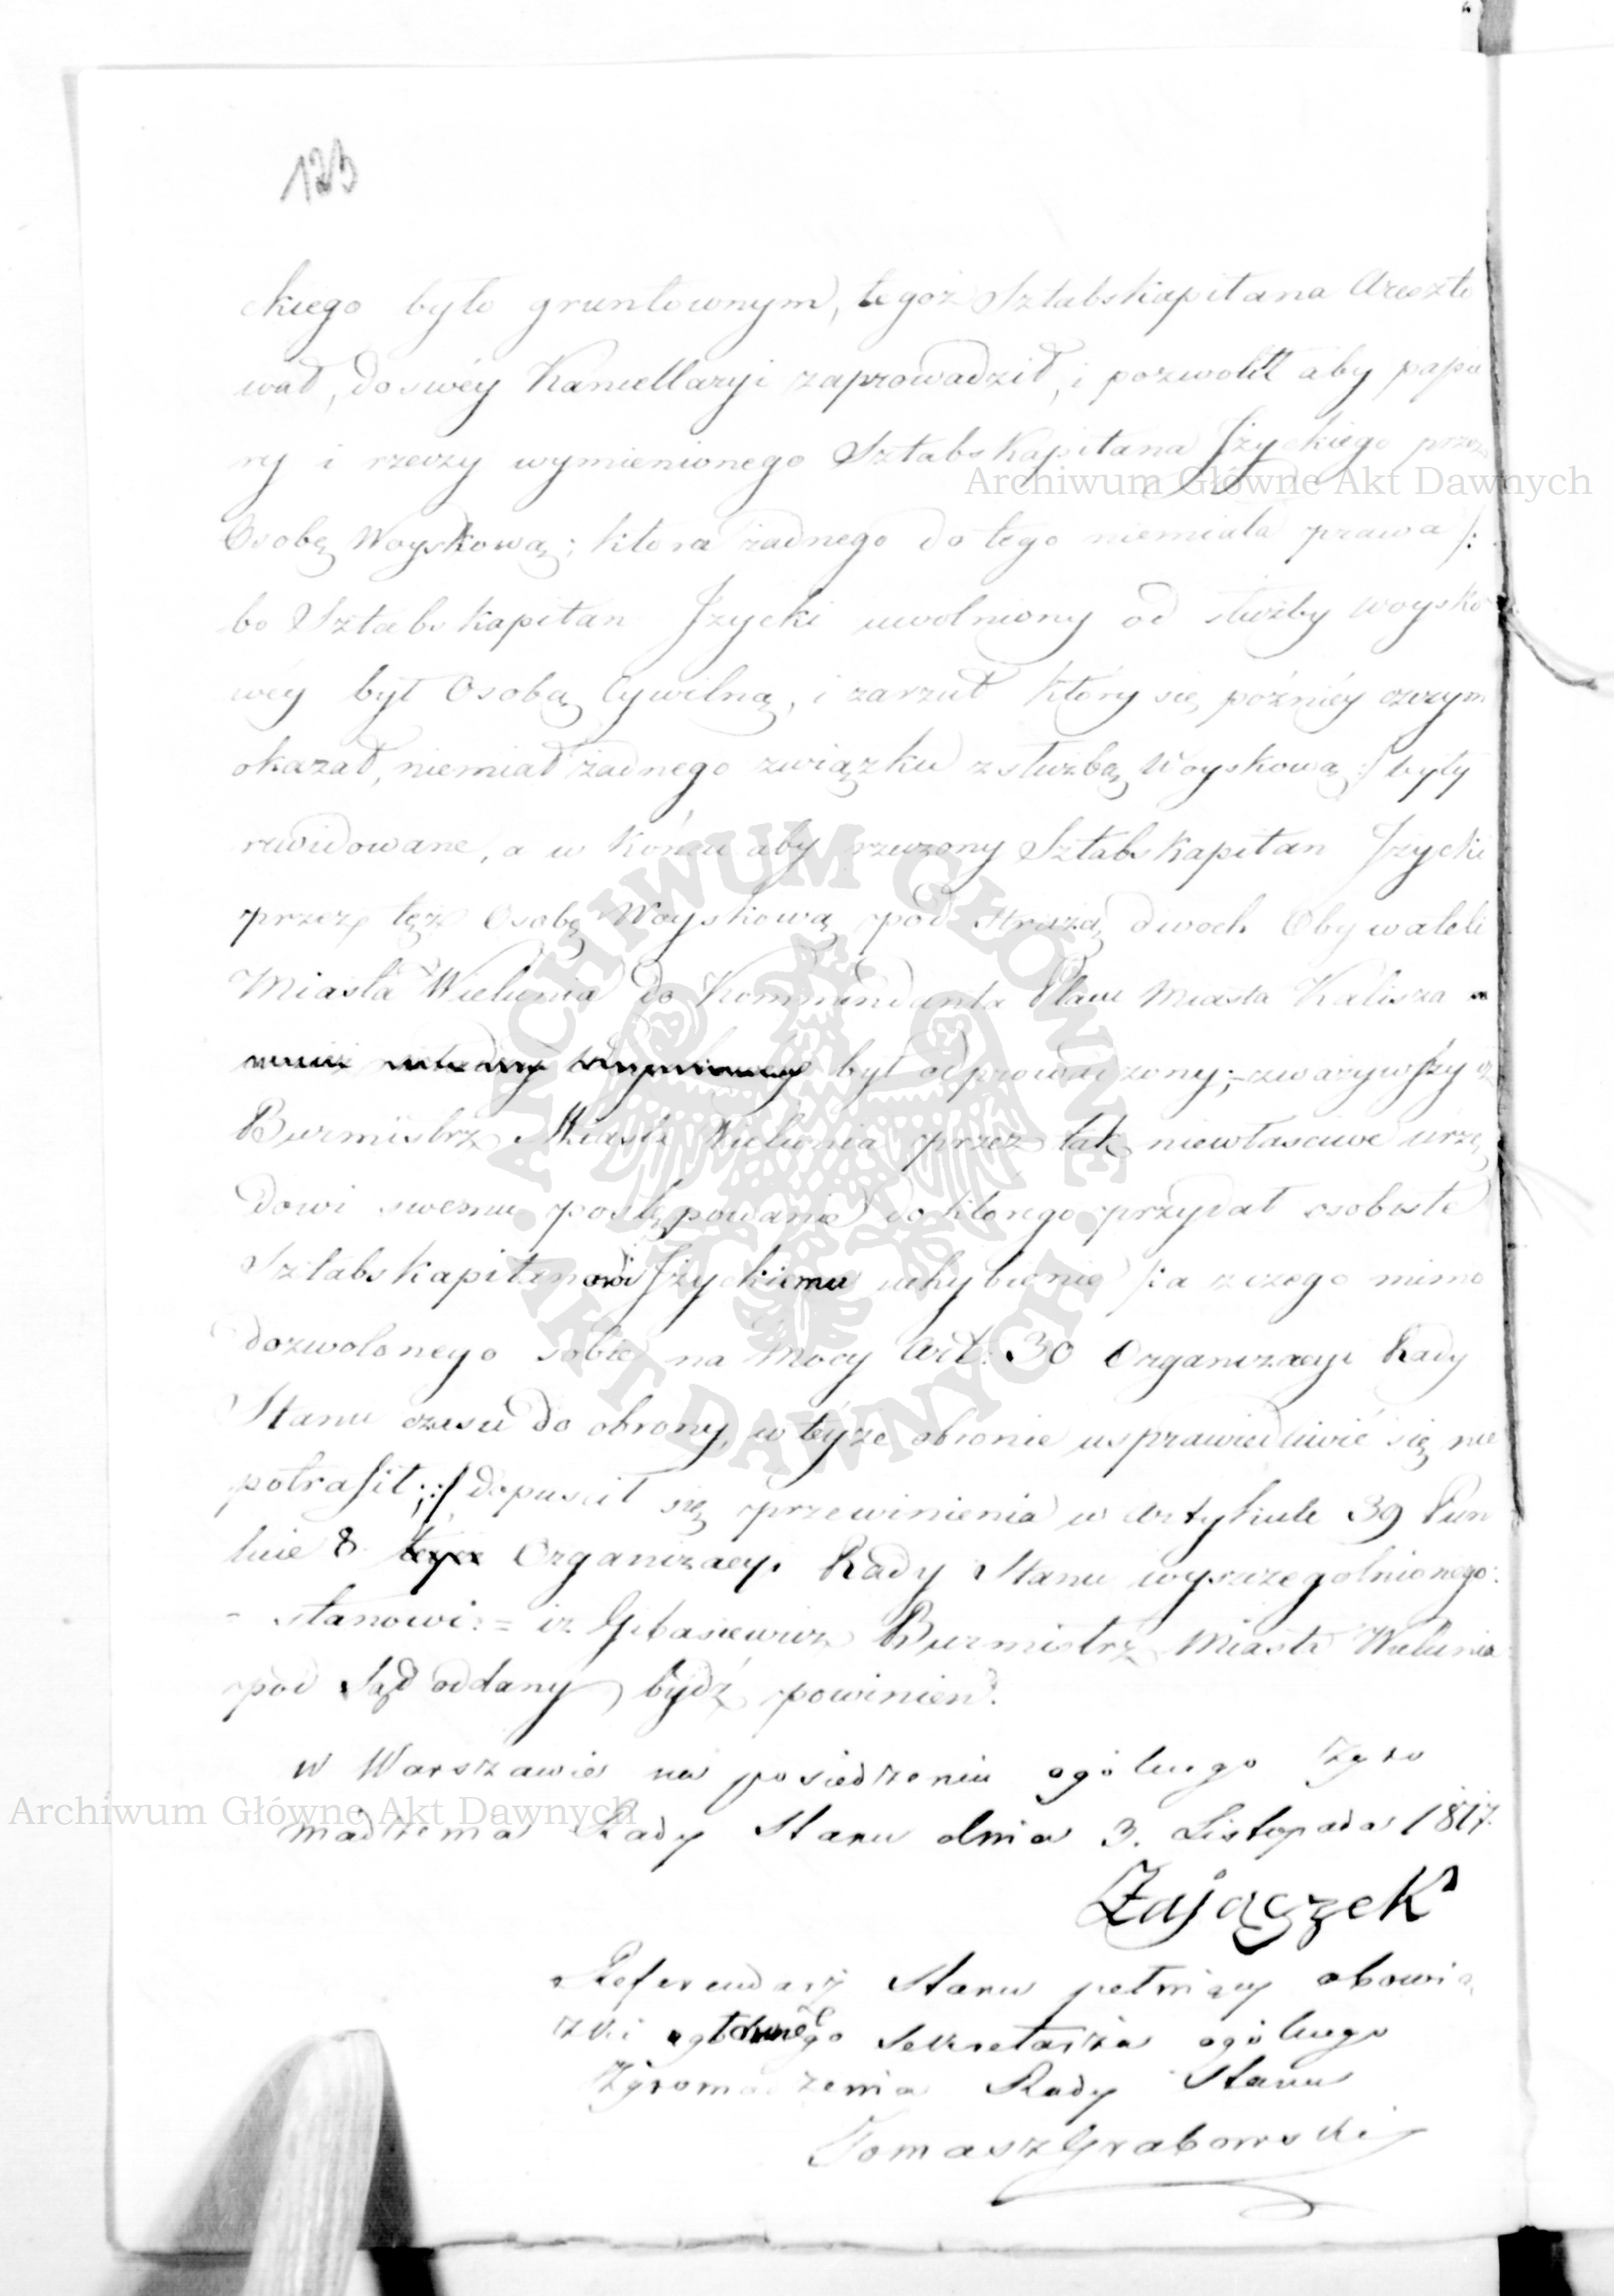 123
ckiego było gruntownym, tegoż Sztabskapitana Areszto
wał, do swéy Kancellaryi zaprowadził, i pozwolił aby papie
ry i rzeczy wymienionego Sztabskapitana Jżyckiego przez
Osobę Woyskową; która żadnego do tego niemiała prawa /:
bo Sztabskapitan Jżycki uwolniony od służby woysko
wéy był Osobą Cywilną, i zarzut który się późniéy czczym
okazał, niemiał żadnego związku z służbą Woyskową :/ były
rewidowane, a w końcu aby rzeczony Sztabskapitan Jżycki
przez tęż Osobę Woyskową pod strażą dwóch Obywateli
Miasta Wielunia do Kommendanta Placu Miasta Kalisza
był odprowadzony; – zważywszy iż
Burmistrz Miasta Wielunia przez tak niewłaściwe urzę
dowi swemu postępowanie do którego przydał osobiste
Sztabskapitanowi Jżyckiemu uchybienie /: a z czego mimo
dozwolonego sobie na mocy Art: 30 Organizacyi Rady
Stanu czasu do obrony, w téyże obronie usprawiedliwić się nie
potrafił; :/ dopuścił się przewinienia w Artykule 39 Pun
kcie 8 Organizacyi Rady Stanu wyszczegolnionego:
– stanowi: = iż Gębasiewicz Burmistrz Miasta Wielunia
pod Sąd oddany bydź powinien.
w Warszawie na posiedzeniu ogólnego Zgro
madzenia Rady Stanu dnia 3. Listopada 1817.
Zajączek
Referendarz Stanu pełniący obowią
zki głównego Sekretarza ogólnego
Zgromadzenia Rady Stanu
Tomasz Grabowski
Archiwum Główne Akt Dawnych
Archiwum Główne Akt Dawnych
ARCHIWUM GŁÓWNE
AKT DAWNYCH